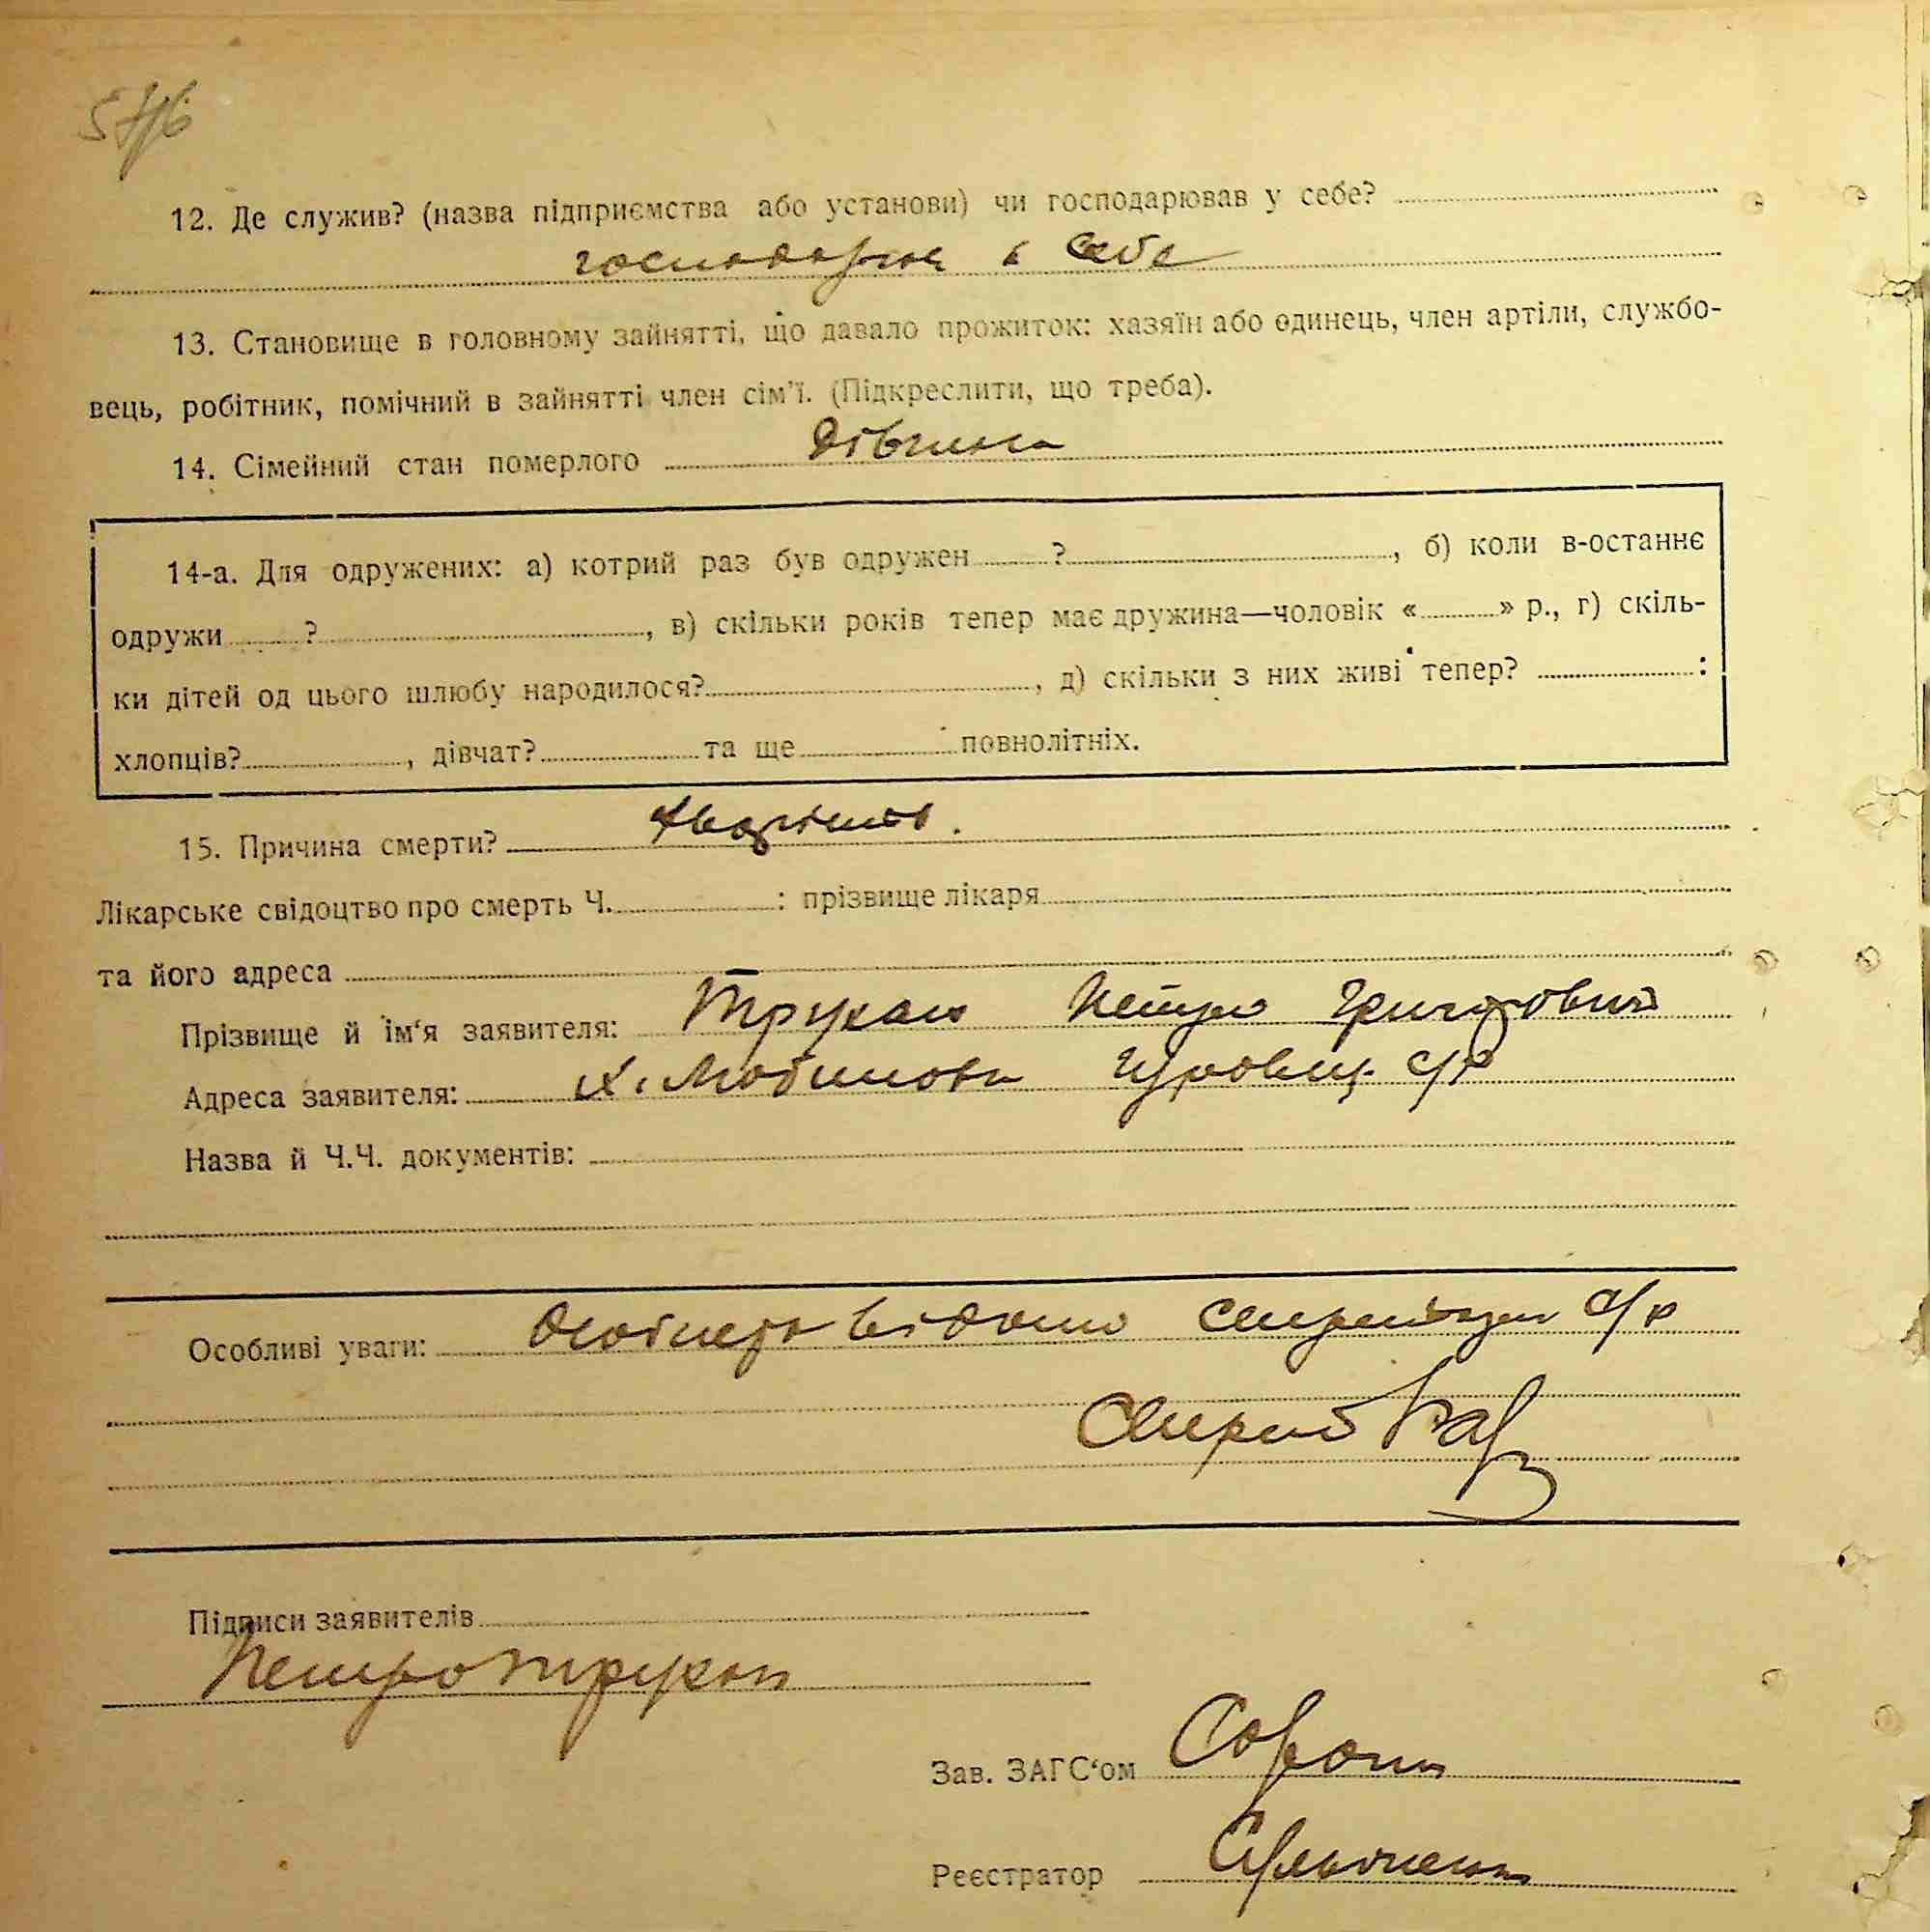 12. Де служив? (назва підприємства або установи) чи господарював у себе?
в себе
13. Становище в головному зайнятті, що давало прожиток: хазяїн або одинець, член артіли, службо-
вець, робітник, помічний в зайнятті член сім'ї. (Підкреслити, що треба).
14. Сімейний стан померлого Дівчина
14-а. Для одружених: а) котрий раз був одружен ?, б) коли в-останнє
одружи ?, в) скільки років тепер має дружина—чоловік « » р., г) скіль-
ки дітей од цього шлюбу народилося?, д) скільки з них живі тепер? :
хлопців?, дівчат? та ще повнолітніх.
15. Причина смерти?
Лікарське свідоцтво про смерть Ч. : прізвище лікаря
та його адреса
Прізвище й ім'я заявителя: Трукан Петро Григорович
Адреса заявителя: х. Любимовка с/р
Назва й Ч.Ч. документів:
Особливі уваги: відомо с/р
Підписи заявителів
Петро Трукан
Зав. ЗАГС'ом
Реєстратор